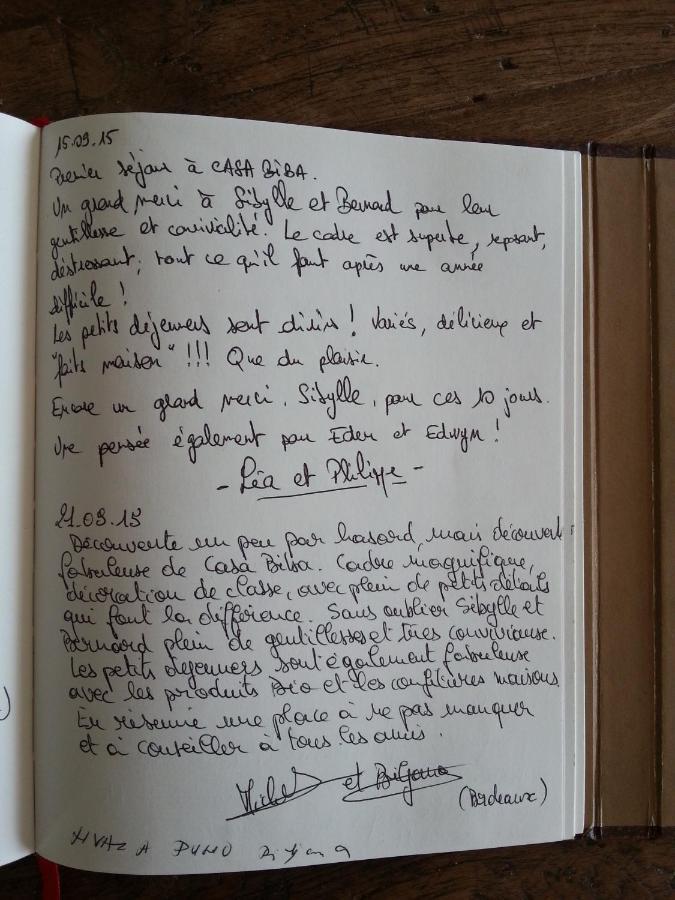 15.09.15
Premier séjour à CASA BIBA.
Un grand merci à Sibylle et Bernard pour leur
gentillesse et convivialité. Le cadre est superbe, reposant,
déstressant, tout ce qu'il faut après une année
difficile !
Les petits déjeuners sont divins ! Variés, délicieux et
"faits maison" !!! Que du plaisir.
Encore un grand merci, Sibylle, pour ces 10 jours.
Une pensée également pour Eden et Edwyn !
- Léa et Philippe -
21.09.15
Découverte un peu par hasard, mais découverte
fabuleuse de Casa Biba. Cadre magnifique,
décoration de classe, avec plein de petits détails
qui font la différence. Sans oublier Sibylle et
Bernard plein de gentillesses et très conviviause.
Les petits dejeuners sont également fabuleuse
avec les produits Bio et les confitures maisons
En résumé une place à ne pas manquer
et à conseiller à tous les amis.
et Biljana
(Bordeaux)
HVALA PUNO Biljana